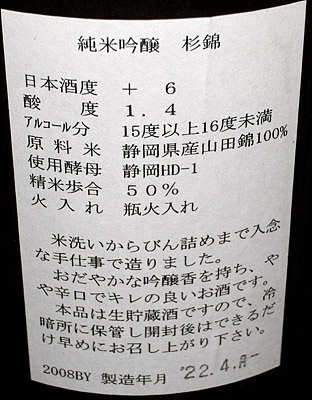 純米吟醸　杉錦
日本酒度　＋　６
酸　　度　１．４
ｱﾙｺｰﾙ分　15度以上16度未満
原 料 米　静岡県産山田錦100%
使用酵母　静岡HD-1
精米歩合　５０％
火 入 れ　瓶火入れ
米洗いからびん詰めまで入念
な手仕事で造りました。
おだやかな吟醸香を持ち、や
や辛口でキレの良いお酒です。
本品は生貯蔵酒ですので、冷
暗所に保管し開封後はできるだ
け早めにお召し上がり下さい。
2008BY 製造年月 '22.4.月